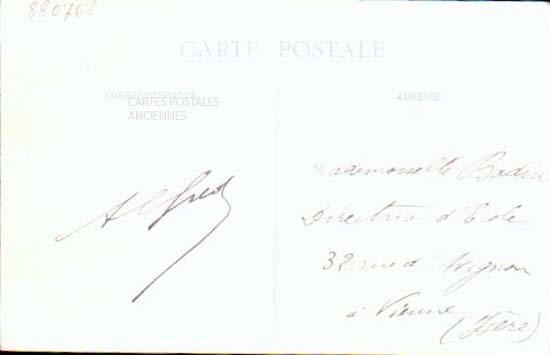 830768
CARTE POSTALE
CORRESPONDANCE
CARTES POSTALES
ANCIENNES
Alfred
ADRESSE
Mademoiselle Badin
Directrice d'Ecole
32 rue d'Avignon
à Vienne
(Isère)